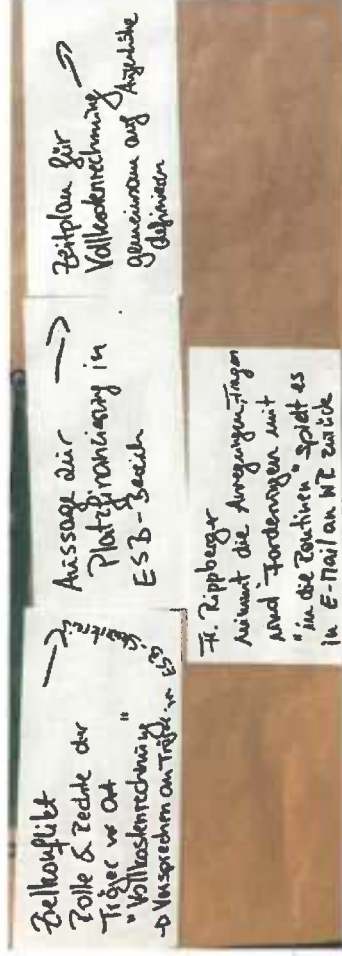 Zielkonflikt →
Rolle & Rechte der
Träger vor Ort
"Vollkostenrechnung"
→ Versprechen an Träger im ESB
Aussage zur →
Platzfinanzierung in
ESB-Bereich
Zeitplan für →
Vollkostenrechnung
gemeinsam auf Augenhöhe
definieren
Fr. Rippberger
nimmt die Anregungen, Fragen
und Forderungen mit
"in die Routinen" spielt es
in E-Mail an NZ zurück